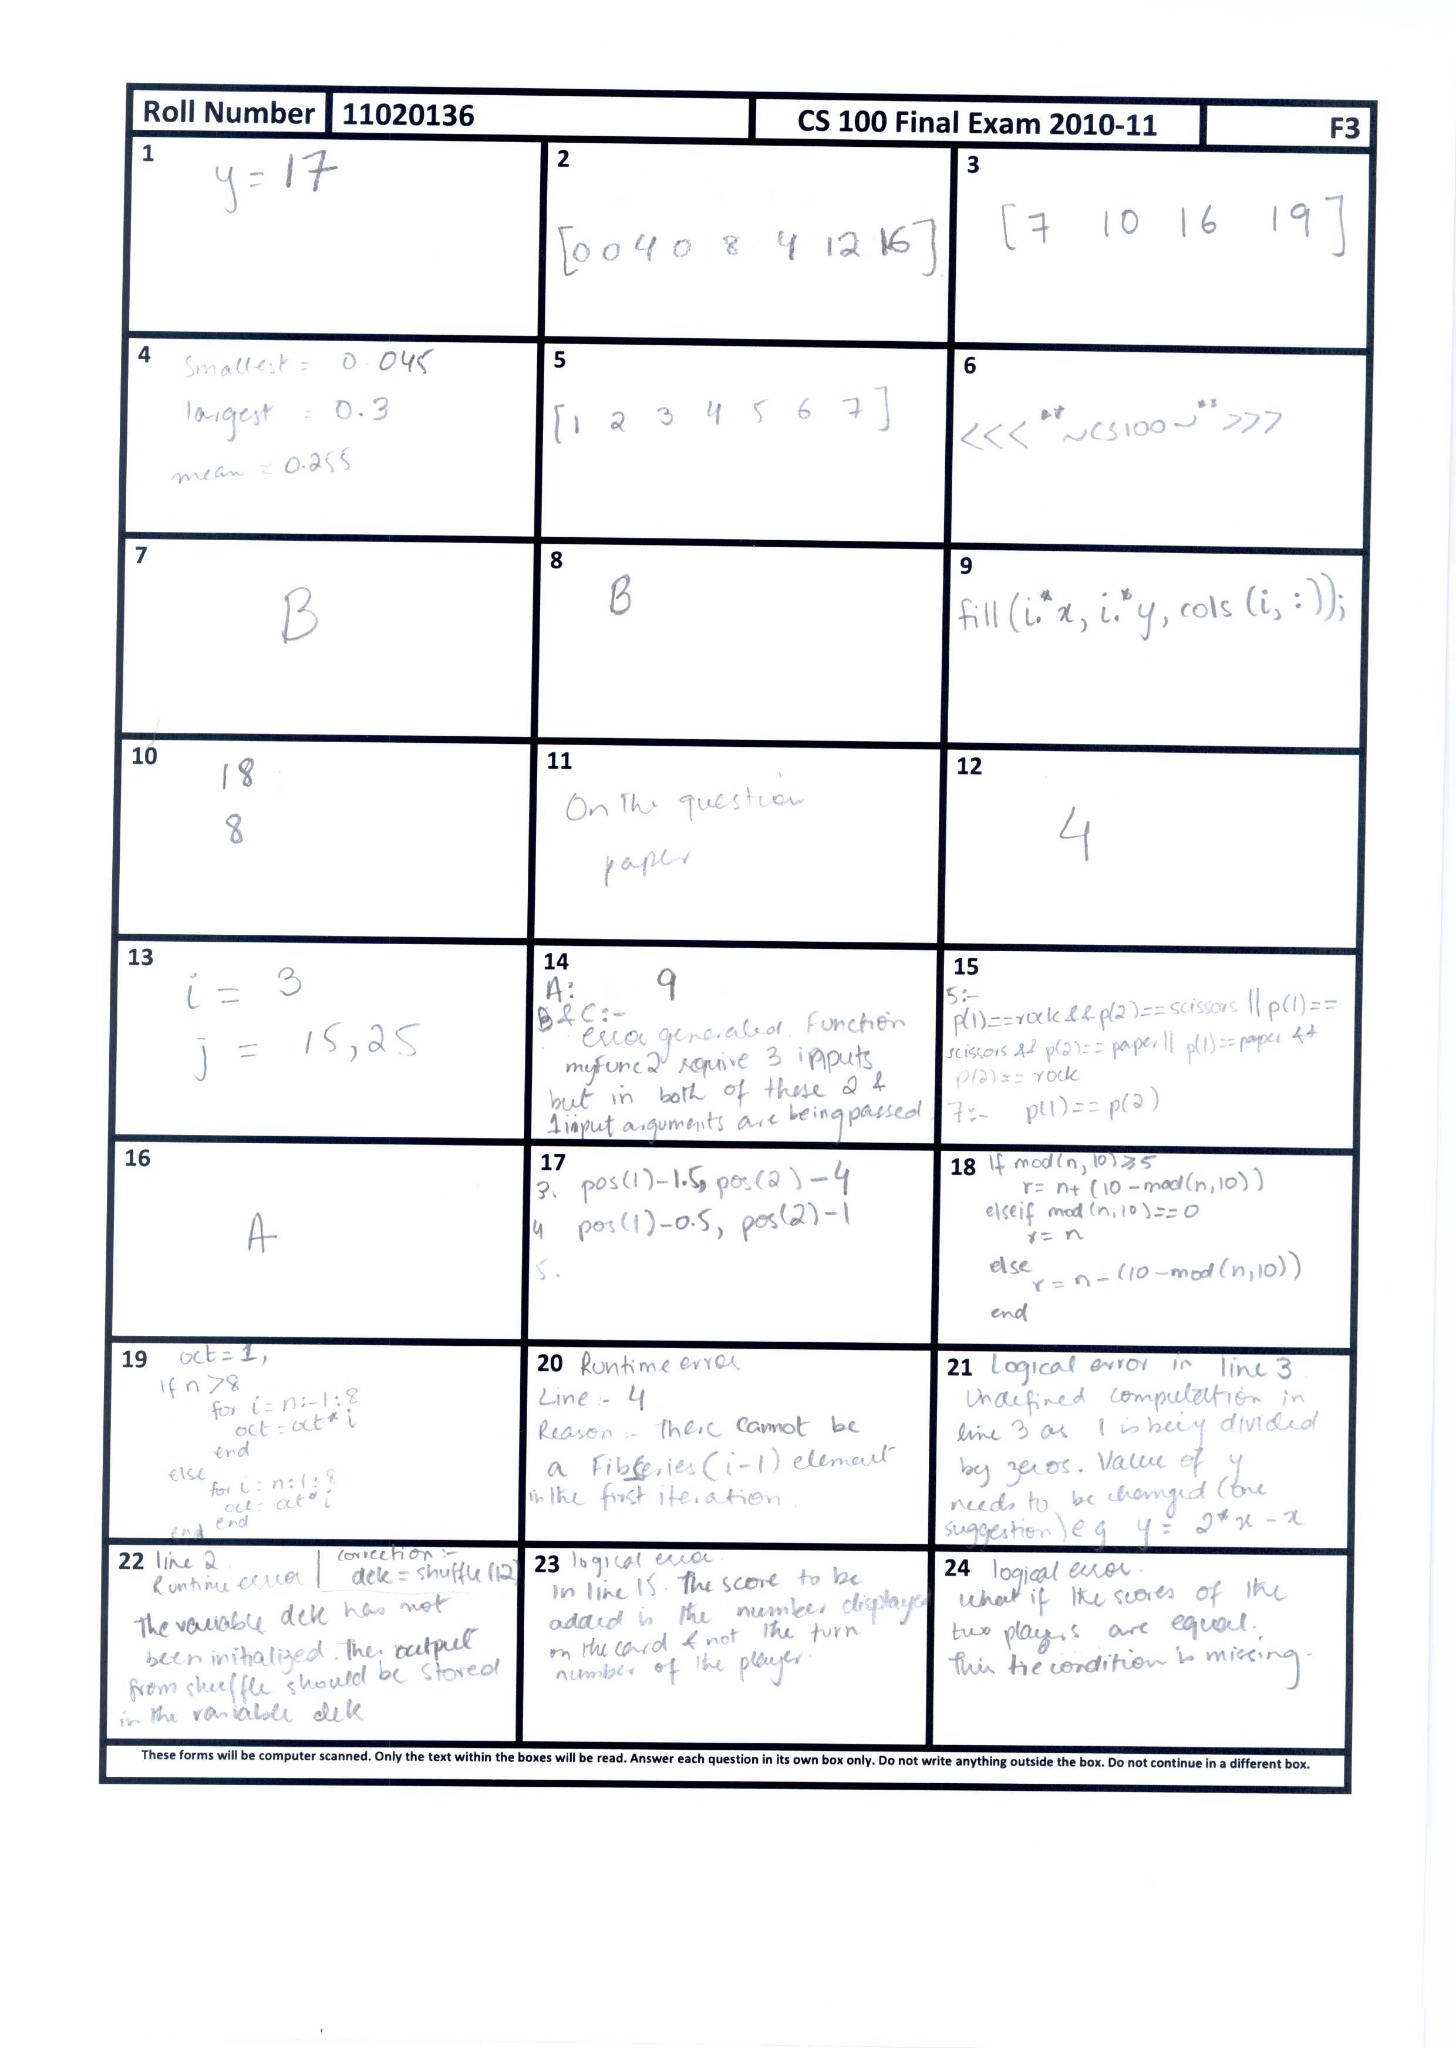 Roll Number 11020136 CS 100 Final Exam 2010-11 F3
1
y = 17
2
[0 0 4 0 8 4 12 16]
3
[7 10 16 19]
4
Smallest = 0.045
largest = 0.3
mean = 0.255
5
[1 2 3 4 5 6 7]
6
<<< **~CS100~** >>>
7
B
8
B
9
fill(i.*x, i.*y, cols(i,:));
10
18
8
11
On the question
paper
12
4
13
i = 3
j = 15, 25
14
A: 9
B & C:-
error generated. Function
myfunc2 require 3 inputs
but in both of these 2 &
1 input arguments are being passed
15
5:-
p(1)==rock && p(2)==scissors || p(1)==
scissors && p(2)==paper || p(1)==paper &&
p(2)==rock
7:- p(1)==p(2)
16
A
17
3. pos(1)-1.5, pos(2)-4
4 pos(1)-0.5, pos(2)-1
5.
18 If mod(n,10)≥5
r= n+(10-mod(n,10))
elseif mod(n,10)==0
r= n
else
r = n-(10-mod(n,10))
end
19 oct=1,
If n>8
for i=n:-1:8
oct=oct*i
end
else
for i=n:1:8
oct=oct*i
end
end
20 Runtime error
Line:- 4
Reason:- There cannot be
a FibSeries(i-1) element
in the first iteration.
21 Logical error in line 3
Undefined computation in
line 3 as 1 is being divided
by zeros. Value of y
needs to be changed (one
suggestion) eg y = 2*x-x
22 line 2
Runtime error
correction:-
dek=shuffle(12)
The variable dek has not
been initialized. The output
from shuffle should be stored
in the variable dek
23 logical error.
In line 15. The score to be
added is the number displayed
on the card & not the turn
number of the player.
24 logical error.
What if the scores of the
two players are equal.
This tie condition is missing.
These forms will be computer scanned. Only the text within the boxes will be read. Answer each question in its own box only. Do not write anything outside the box. Do not continue in a different box.